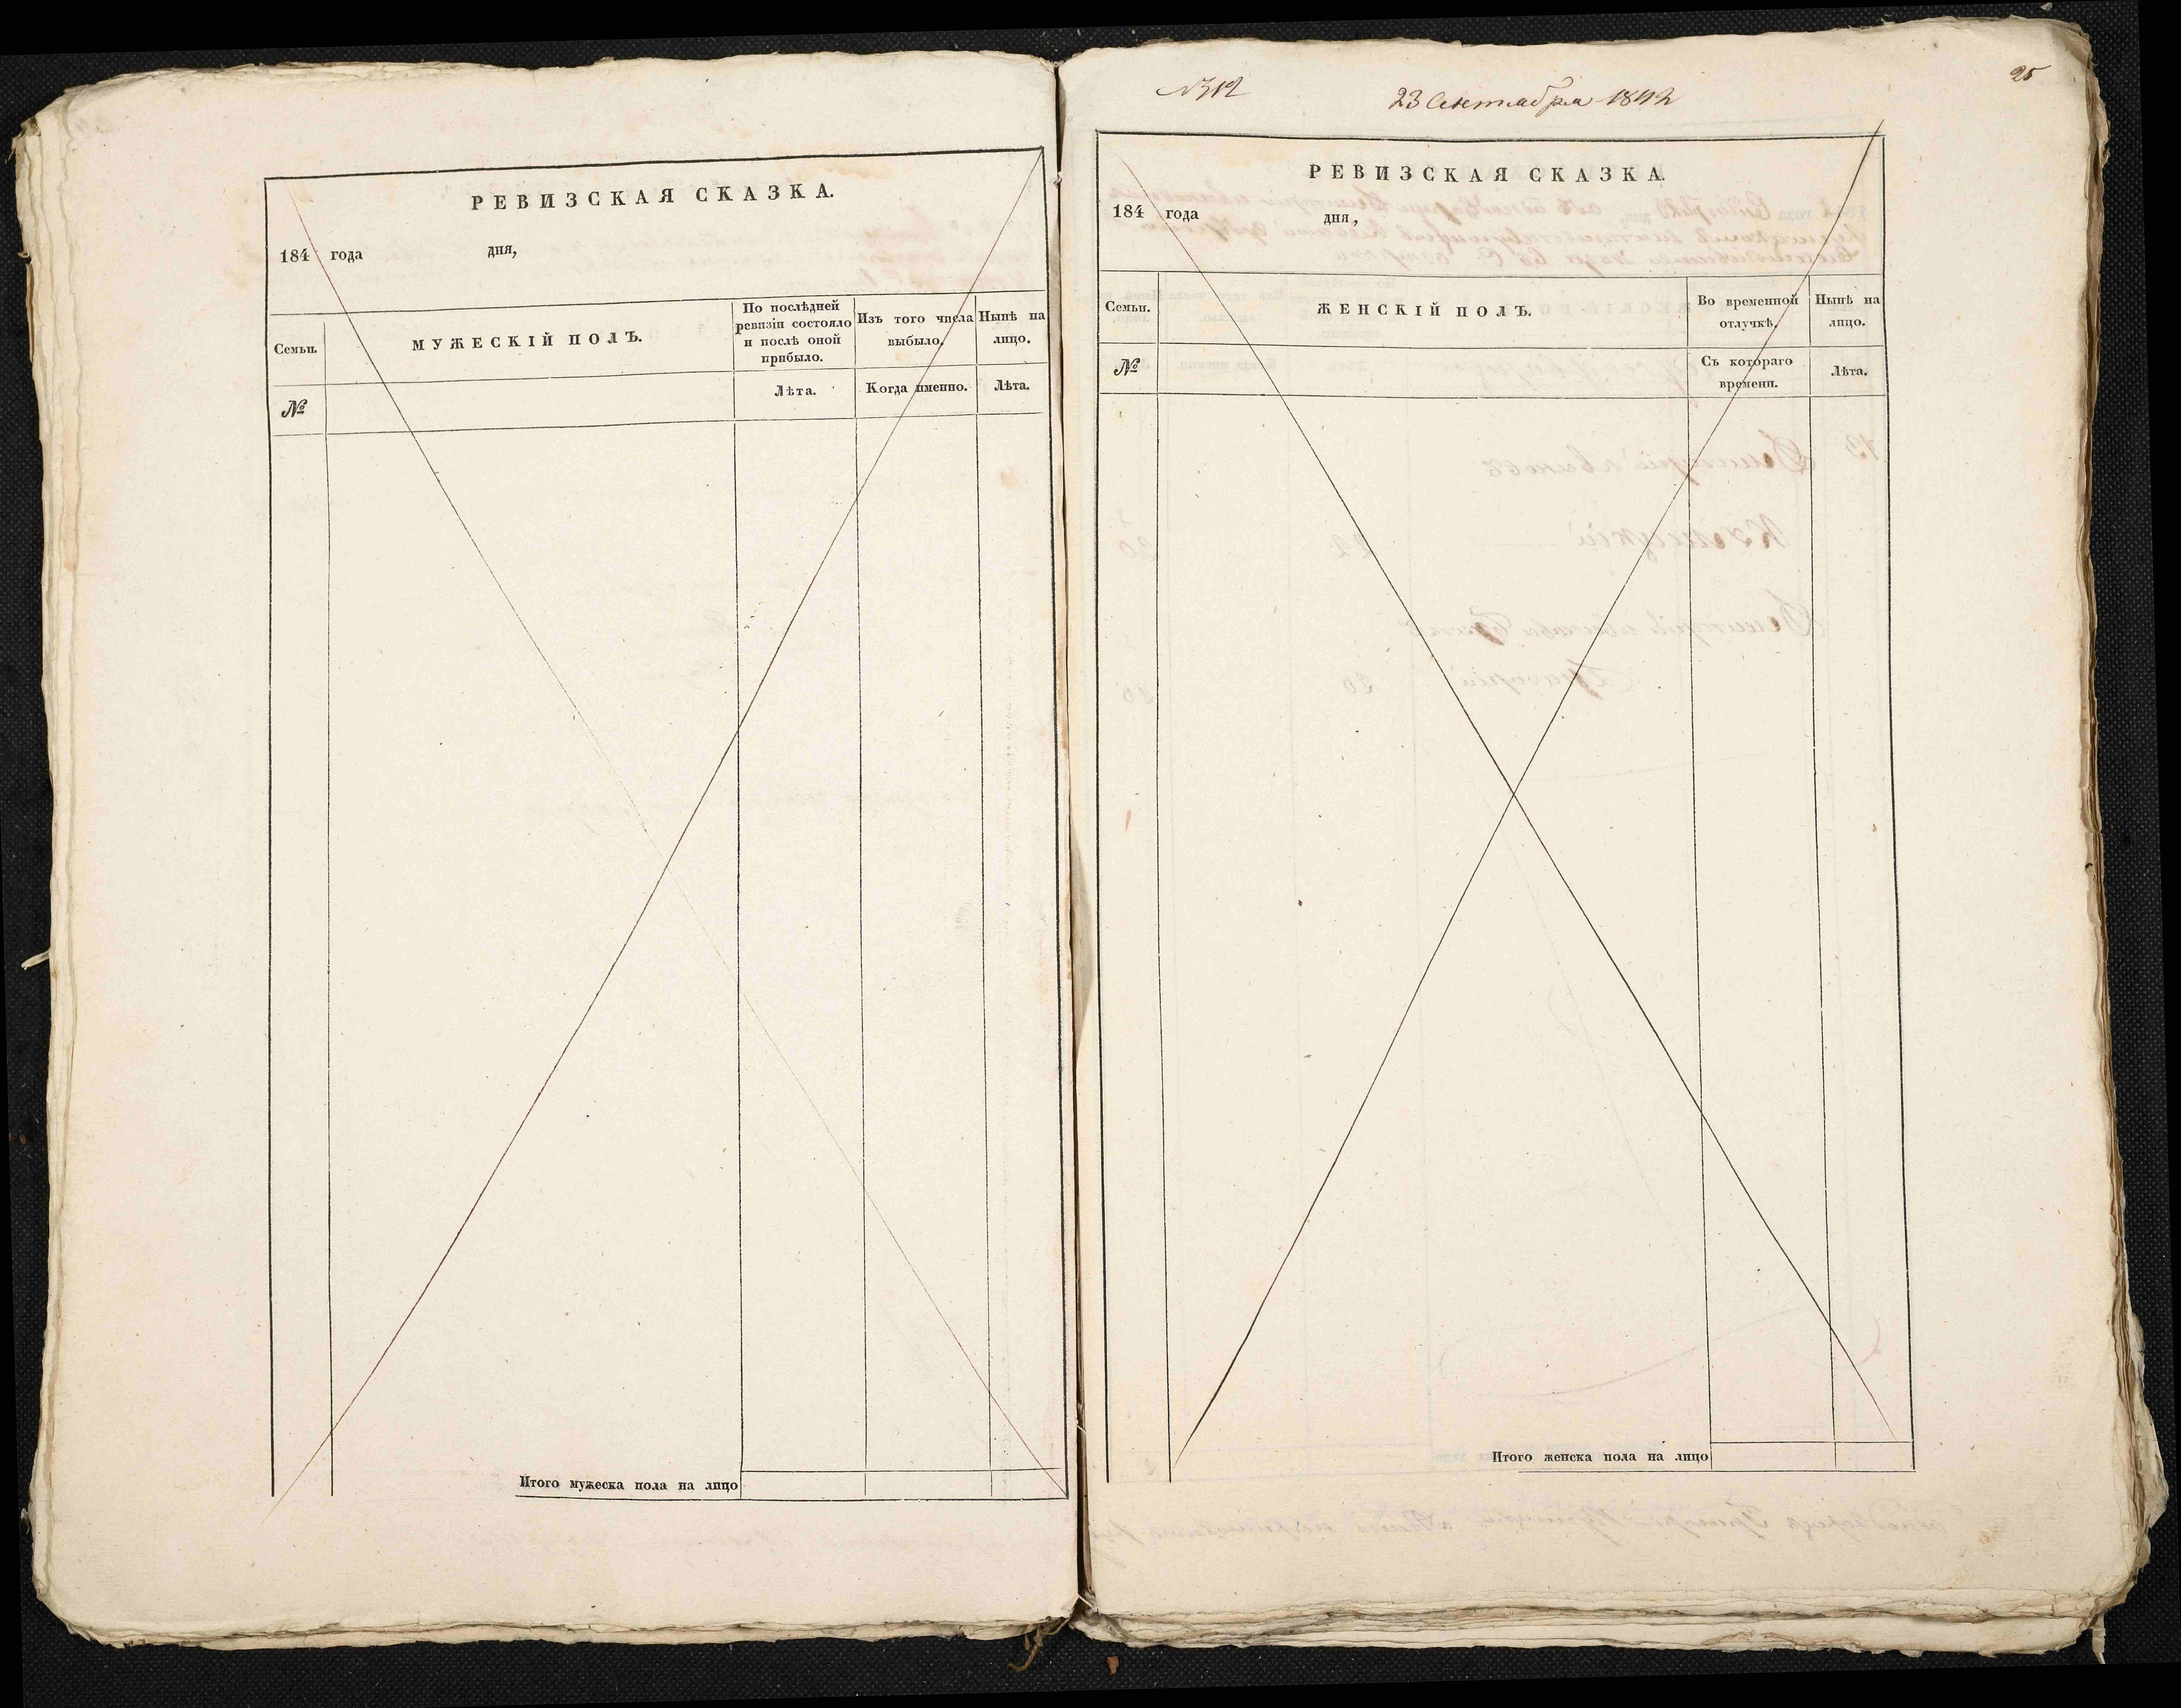 РЕВИЗСКАЯ СКАЗКА.
184 года дня,
Семьи.
МУЖЕСКІЙ ПОЛЪ.
По послѣдней
ревизіи состояло
и послѣ оной
прибыло.
Изъ того числа
выбыло.
Нынѣ на
лицо.
№
Лѣта.
Когда именно.
Лѣта.
Итого мужеска пола на лицо
№12
23 Сентября 1842
25
РЕВИЗСКАЯ СКАЗКА.
184 года дня,
Семьи.
ЖЕНСКІЙ ПОЛЪ.
Во временной
отлучкѣ.
Нынѣ на
лицо.
№
Съ котораго
времени.
Лѣта.
Итого женска пола на лицо